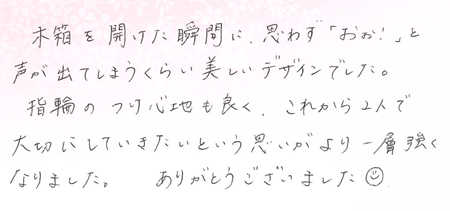 木箱を開けた瞬間に、思わず「おぉ！」と
声が出てしまうくらい美しいデザインでした。
指輪のつけ心地も良く、これから2人で
大切にしていきたいという思いがより一層強く
なりました。　ありがとうございました☺